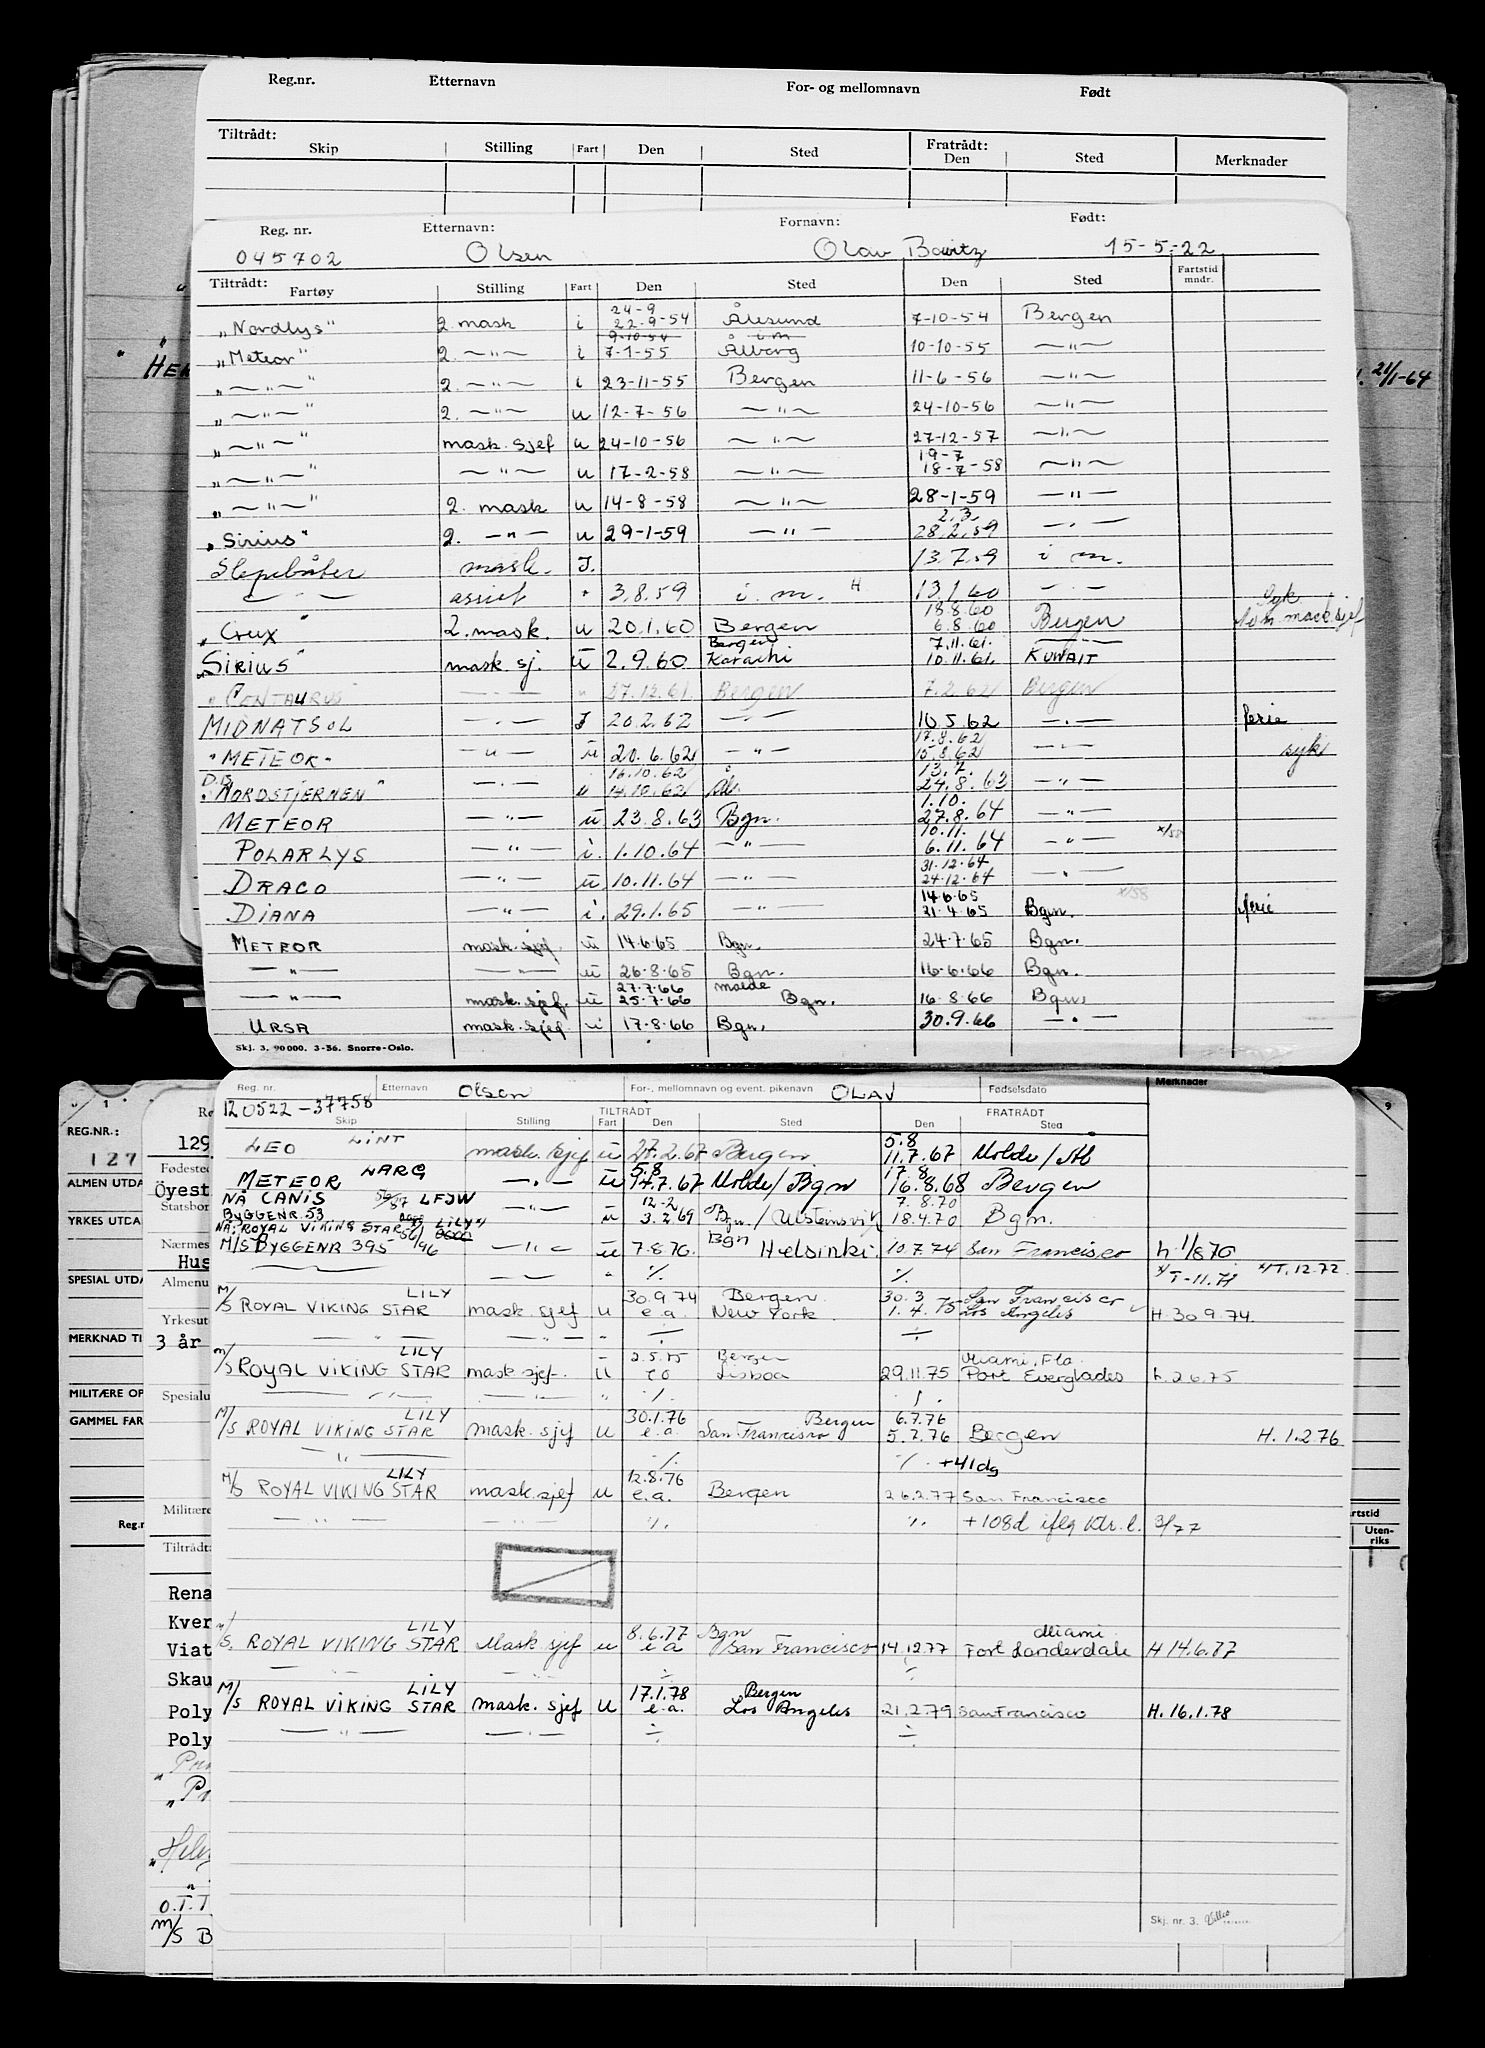 Reg.nr. Etternavn For- og mellomnavn Født
Tiltrådt: Fratrådt:
Skip Stilling Fart Den Sted Den Sted Merknader
Reg. nr. Etternavn: Fornavn: Født:
045702 Olsen Olav 15-5-22
Tiltrådt:
Fartøy Stilling Fart Den Sted Den Sted Fartstid mndr.
24-9
"Nordlys" 2. mask i 22-9-54 Ålesund 7-10-54 Bergen
9-10-54 i m
"Meteor" 2. —"— i 7-1-55 Ålborg 10-10-55 —"—
"—"—" 2. —"— i 23-11-55 Bergen 11-6-56 —"—
"—"—" 2. —"— u 12-7-56 —"— 24-10-56 —"—
"—"—" mask. sjef u 24-10-56 —"— 27-12-57 —"—
19-7
"—"—" —"— u 17-2-58 —"— 18-7-58 —"—
"—"—" 2. mask u 14-8-58 —"— 28-1-59 —"—
2.3.
"Sirius" 2. —"— u 29-1-59 —"— 28.2.59 —"—
Slepebåter mask. J. 13.7.59 i m.
—"— assist " 3.8.59 i. m. H 13.1.60 —"—
18.8.60 Syk
"Crux" 2. mask. u 20.1.60 Bergen 6.8.60 Bergen som mask.sjef
Bergen 7.11.61
"Sirius" mask sj. u 2.9.60 Karachi 10.11.61 KUWAIT
"CENTAURUS" —"— " 27.12.61 Bergen 7.2.62 Bergen
MIDNATSOL —"— J 20.2.62 —"— 10.5.62 —"— ferie
17.8.62
"METEOR" —"— u 20.6.62 —"— 15.8.62 —"— syk
D.S. 16.10.62 13.7.
"NORDSTJERNEN" —"— u 14.10.62 Ål. 24.8.63 —"—
1.10.
METEOR —"— u 23.8.63 Bgn. 27.8.64 —"—
10.11.
POLARLYS —"— i. 1.10.64 —"— 6.11.64 —"— x/58
31.12.64
DRACO —"— u 10.11.64 —"— 24.12.64 —"—
14.6.65 x/58
DIANA —"— i. 29.1.65 —"— 21.4.65 Bgn. ferie
METEOR mask.sjef. u 14.6.65 Bgn. 24.7.65 Bgn.
—"— —"— u 26.8.65 Bgn. 16.6.66 Bgn.
27.7.66 Molde
—"— mask.sjef. u 25.7.66 Bgn. 16.8.66 Bgn.
URSA mask.sjef. i 17.8.66 Bgn. 30.9.66 —"—
Skj. 3. 90000. 3-56. Snorre-Oslo.
"HE
21/1-64
Reg. nr. Etternavn For-, mellomnavn og event. pikenavn Fødselsdato Merknader
120522-37758 Olsen OLAV
TILTRÅDT FRATRÅDT
Skip Stilling Fart Den Sted Den Sted
5.8
LEO LINT mask. sjef u 27.2.67 Bergen 11.7.67 Molde/Ab
LARG 5.8 17.8
METEOR —"— u 14.7.67 Molde/Bgn 16.8.68 Bergen
NÅ CANIS 56/87 LFJW 12-2 7.8.70
BYGGENR. 53 —"— u 3.2.69 Bgn./Ulsteinsvik 18.4.70 Bgn.
NÅ: ROYAL VIKING STAR LILY
M/S BYGGENR 395 56/96 —"— u 7.8.70 Bgn Helsinki 10.7.74 San Francisco h 1/8 70
—"— —"— " ·/. ·/. x/T-11.71 x/T.12.72
LILY 30.9.74 Bergen 30.3 San Francisco
M/S ROYAL VIKING STAR mask. sjef u e.a. New York 1.4.75 Los Angeles H 30.9.74
—"— —"— " ÷ ÷
LILY 2.5.75 Bergen Miami, Fla.
M/S ROYAL VIKING STAR mask sjef. u Lisboa 29.11.75 Port Everglades h. 2.6.75
—"— —"— " ·/. ·/.
LILY 30.1.76 Bergen 6.7.76
M/S ROYAL VIKING STAR mask. sjef u e.a. San Francisco 5.7.76 Bergen H. 1.2.76
—"— ·/. ·/. +41dg
LILY 12.8.76
M/S ROYAL VIKING STAR mask.sjef u e.a. Bergen 26.2.77 San Francisco
—"— —"— ·/. ·/. +108d iflg Ktr. l. 3/77
LILY 8.6.77 Bgn Miami
M/S. ROYAL VIKING STAR Mask sjef u e a San Francisco 14.12.77 Fort Lauderdale H 14.6.77
—"— —"— ÷ ÷
LILY 17.1.78 Bergen
M/S ROYAL VIKING STAR mask. sjef u e.a. Los Angeles 21.2.79 San Francisco H. 16.1.78
—"— —"— ÷ ÷
Skj. nr. 3.
REG.NR.:
127
ALMEN UTDA
YRKES UTDA
SPECIAL UTDA
MERKNAD TI
MILITÆRE OP
GAMMEL FAR
Reg.n
Re
129
Fødested
Öyest
Statsbor
Nærmes
Hus
Almenu
Yrkesut
3 år
Spesialu
Militære
Tiltrådt:
Rena
Kver
Viat
Skau
Poly
Poly
O.T.T
M/S B
9
rtstid
Uten-
riks